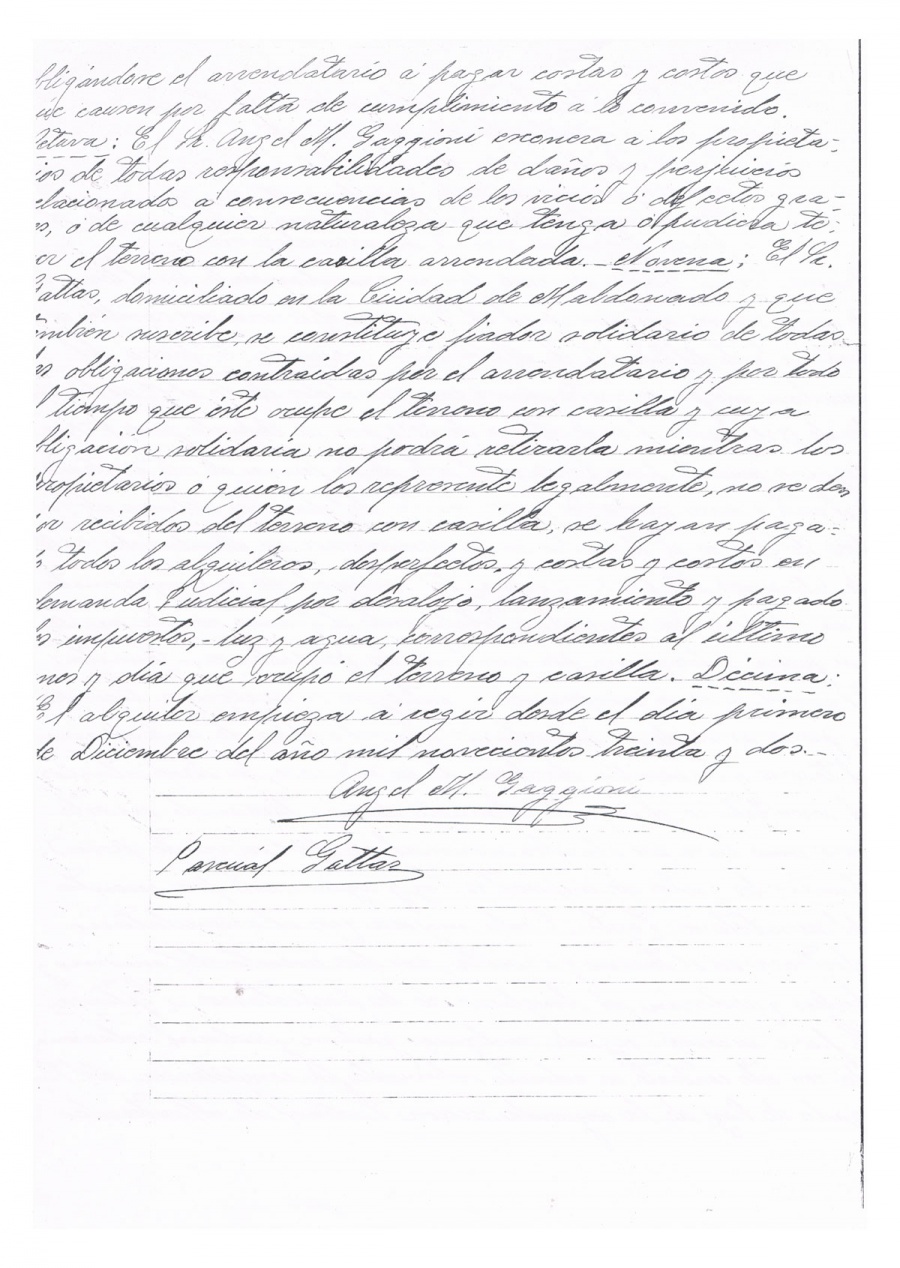 bligándose el arrendatario á pagar costas y costos que
ue causen por falta de cumplimiento á lo convenido.
Octava: El Sr. Angel M. Gaggioni exonera a los propieta-
ios de todas responsabilidades de daños y perjuicios
elacionado a consecuencias de los vicios ó defectos gra-
s, ó de cualquier naturaleza que tenga ó pudiera te-
er el terreno con la casilla arrendada. - Novena: El Sr.
attas, domiciliado en la Ciudad de Maldonado y que
mbién suscribe, se constituye fiador solidario de todas
s obligaciones contraídas por el arrendatario y por todo
l tiempo que éste ocupe el terreno con casilla y cuya
bligación solidaria no podrá retirarla mientras los
ropietarios ó quién los represente legalmente, no se den
or recibidos del terreno con casilla, se hayan paga-
s todos los alquileres, desperfectos, y costas y costos en
demanda Judicial por desalojo, lanzamiento y pagado
s impuestos, - luz y agua, correspondientes al último
mes y día que ocupó el terreno y casilla. Décima:
El alquiler empieza á regir desde el día primero
de Diciembre del año mil novecientos treinta y dos. -
Angel M. Gaggioni
Pascual Gattas